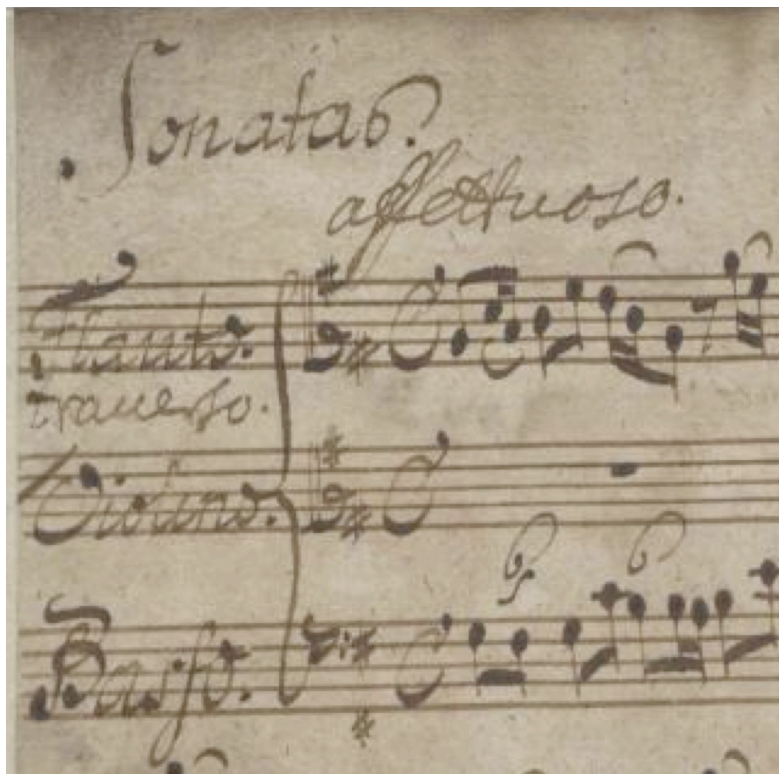 Sonatas.
affettuoso.
Flauto.
traverso.
Violino.
Basso.
6 5
6